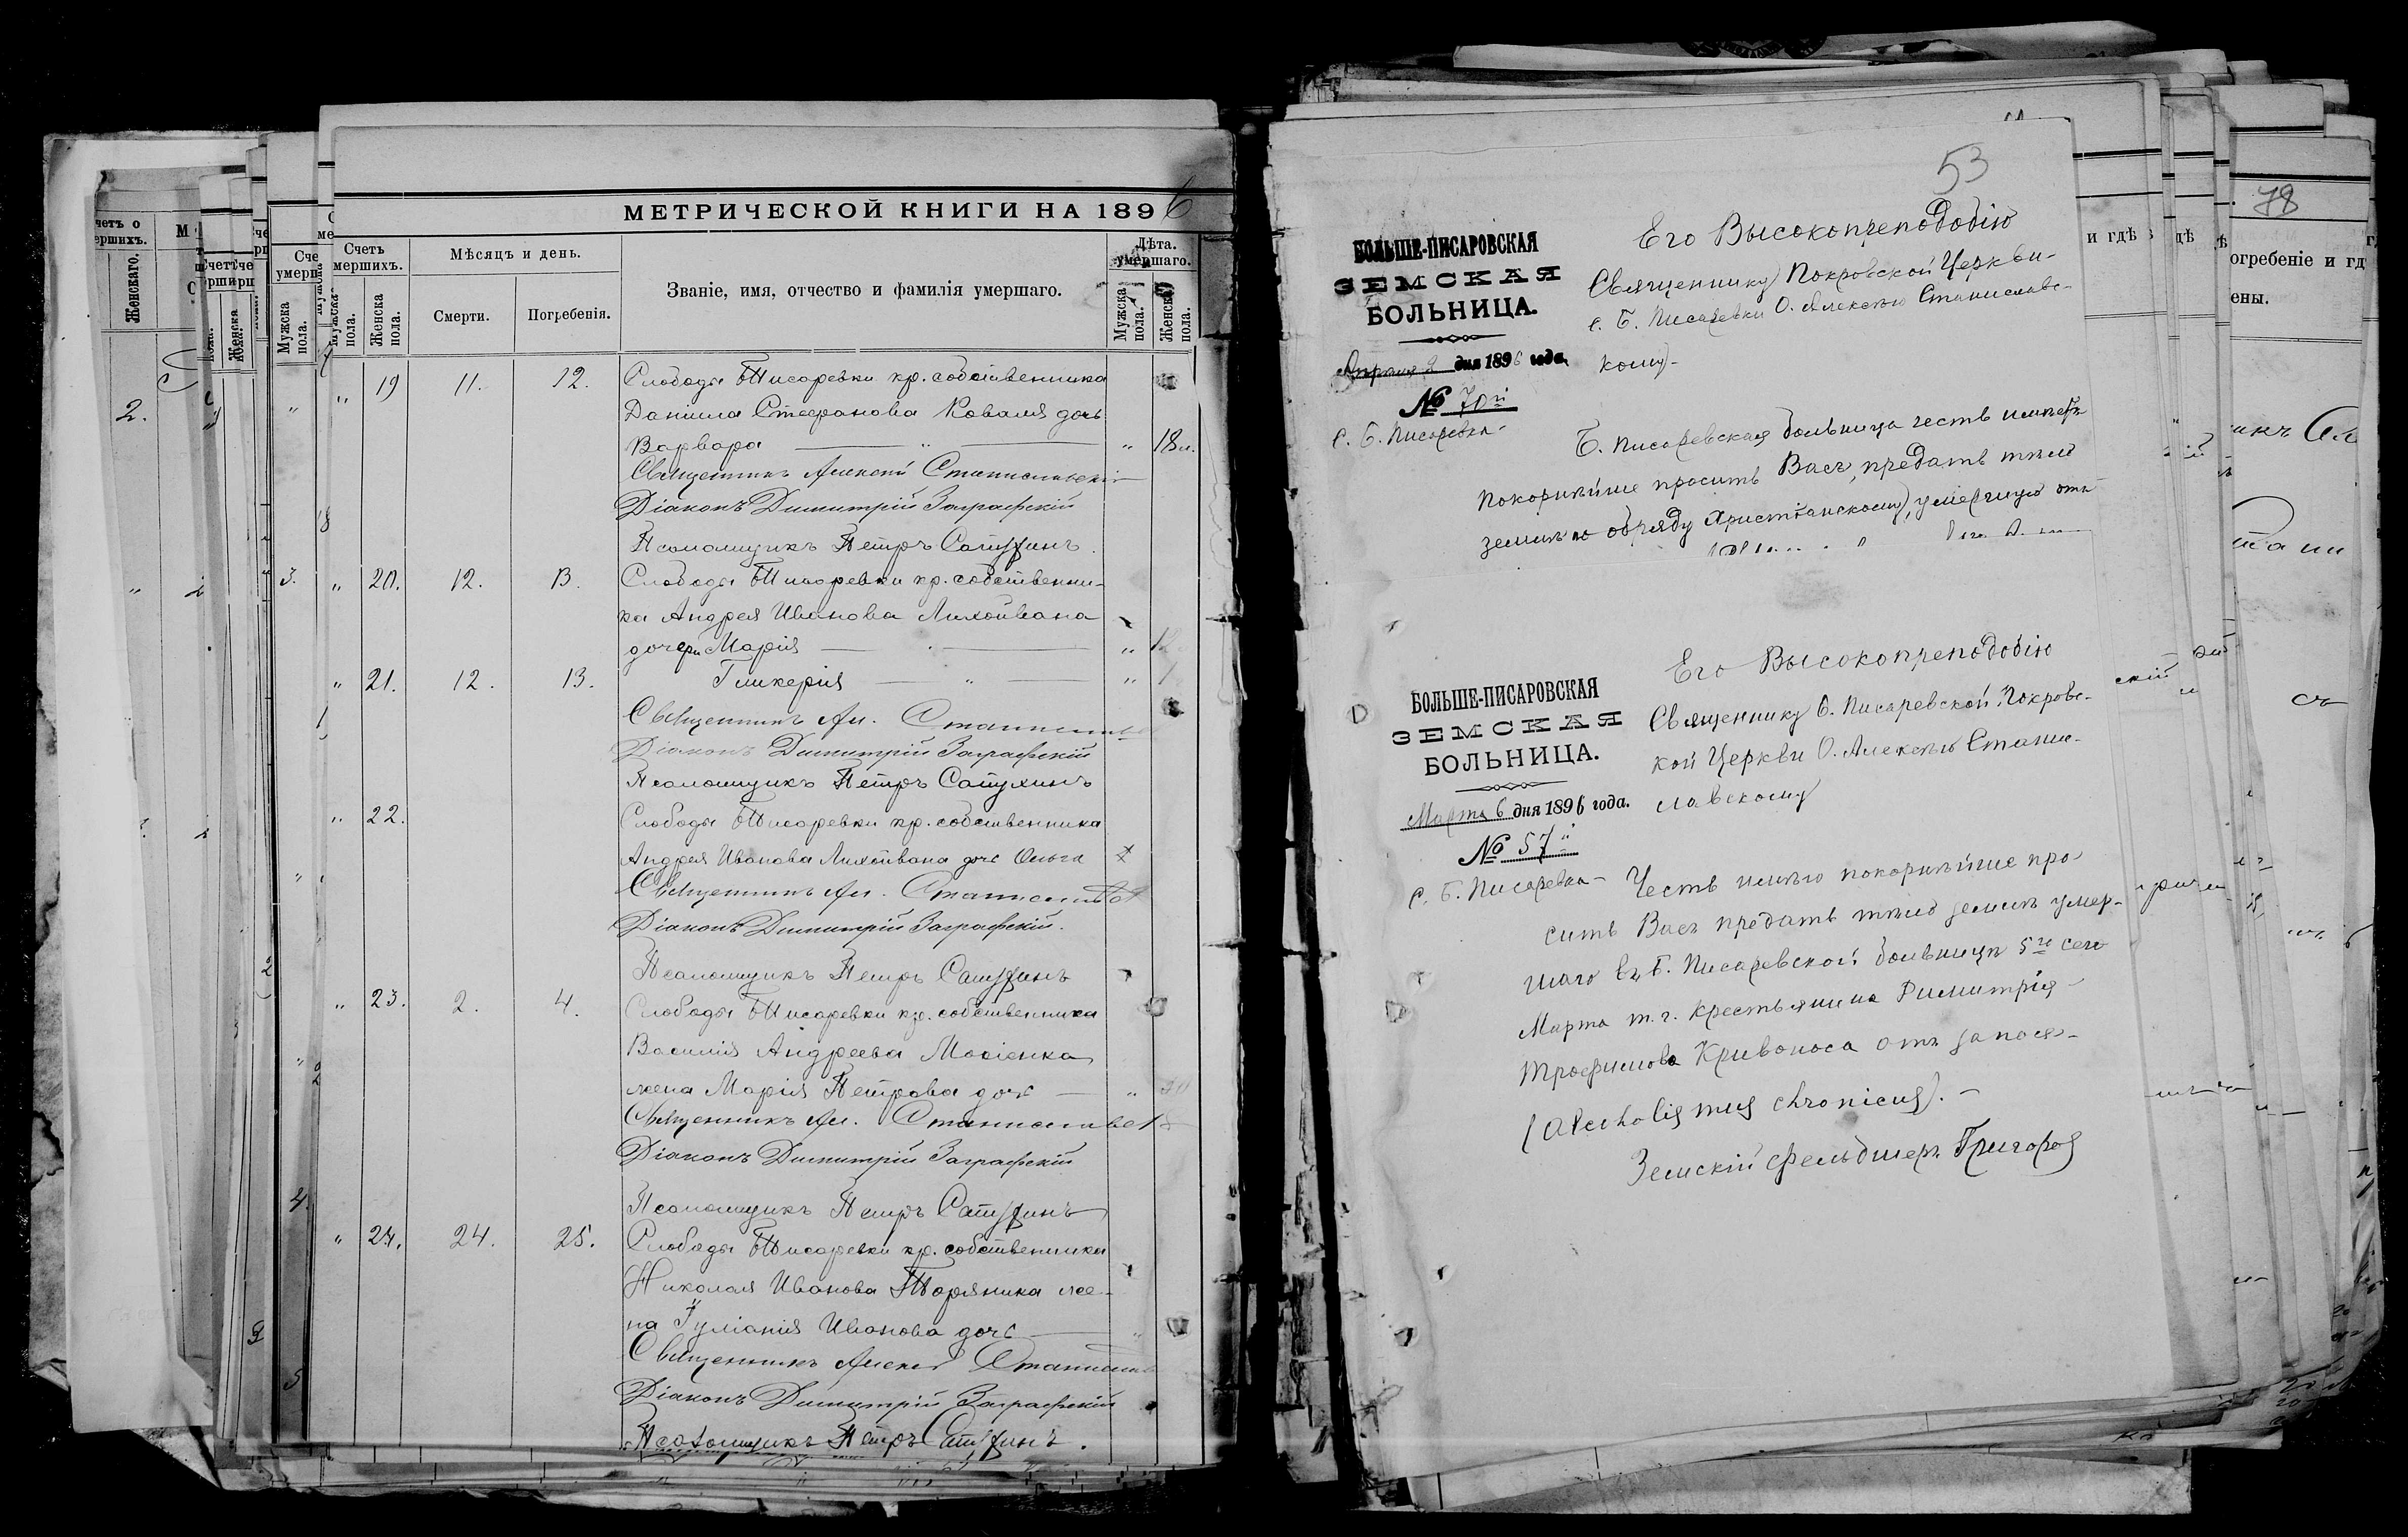 МЕТРИЧЕСКОЙ КНИГИ НА 1896
Счетъ
мершихъ.
Мѣсяцъ и день.
Званіе, имя, отчество и фамилія умершаго.
Лѣта.
умершаго.
Женска
пола.
Смерти.
Погребенія.
Мужска
пола.
Женска
пола.
„ 19 11. 12. Слободы Писаревки кр. собственника
Даніила Стефанова Коваля дочь
Варвара — „ — „ 18
Священникъ Алексей Станиславскій
Діаконъ Димитрій Заграфскій
Псаломщикъ Петръ Сапухинъ.
„ 20. 12. 13. Слободы Писаревки кр. собственни-
ка Андрея Иванова Лихойвана
дочери Марія — „
„ 21. 12. 13. Гликерія — „ — „ 1
Священникъ Ал.
Діаконъ Димитрій Заграфскій
Псаломщикъ Петръ Сапухинъ
„ 22. Слободы Писаревки кр. собственника
Андрея Иванова Лихойвана дочь Ольга
Священникъ Ал.
Діаконъ Димитрій Заграфскій.
Псаломщикъ Петръ Сапухинъ
„ 23. 2. 4. Слободы Писаревки кр. собственника
Василія Андреева Мосіенка
жена Марія Петрова дочь — „
Священникъ Ал.
Діаконъ Димитрій Заграфскій
Псаломщикъ Петръ Сапухинъ
„ 24. 24. 25. Слободы Писаревки кр. собственника
Николая Иванова Поряника же-
на Іуліанія Иванова дочь —
Священникъ Алексей
Діаконъ Димитрій Заграфскій
Псаломщикъ Петръ Сапухинъ.
53
БОЛЬШЕ-ПИСАРОВСКАЯ
ЗЕМСКАЯ
БОЛЬНИЦА.
дня 1896 года.
№ 70й
С. Б. Писаревка-
Его Высокопреподобію
Священнику Покровской Церкви-
с. Б. Писаревки О. Алексѣю Станиславс-
кому-
Б. Писаревская больница честь имѣетъ
покорнѣйше просить Васъ, предать тѣло
землѣ по обряду Христіанскому, умершую отъ
БОЛЬШЕ-ПИСАРОВСКАЯ
ЗЕМСКАЯ
БОЛЬНИЦА.
Марта 6 дня 1896 года.
№ 57й
С. Б. Писаревка-
Его Высокопреподобію
Священнику Б. Писаревской Покровс-
кой Церкви О. Алексѣю Стани-
славскому
Честь имѣю покорнѣйше про-
сить Васъ предать тѣло землѣ умер-
шаго въ Б. Писаревской больницѣ 5го сего
Марта т. г. крестьянина Димитрія
Трофимова Кривоноса отъ запоя-
(Alcoholismus chronicus). -
Земскій фельдшеръ Григоров
78
огребеніе и гд
ены.
и гдѣ